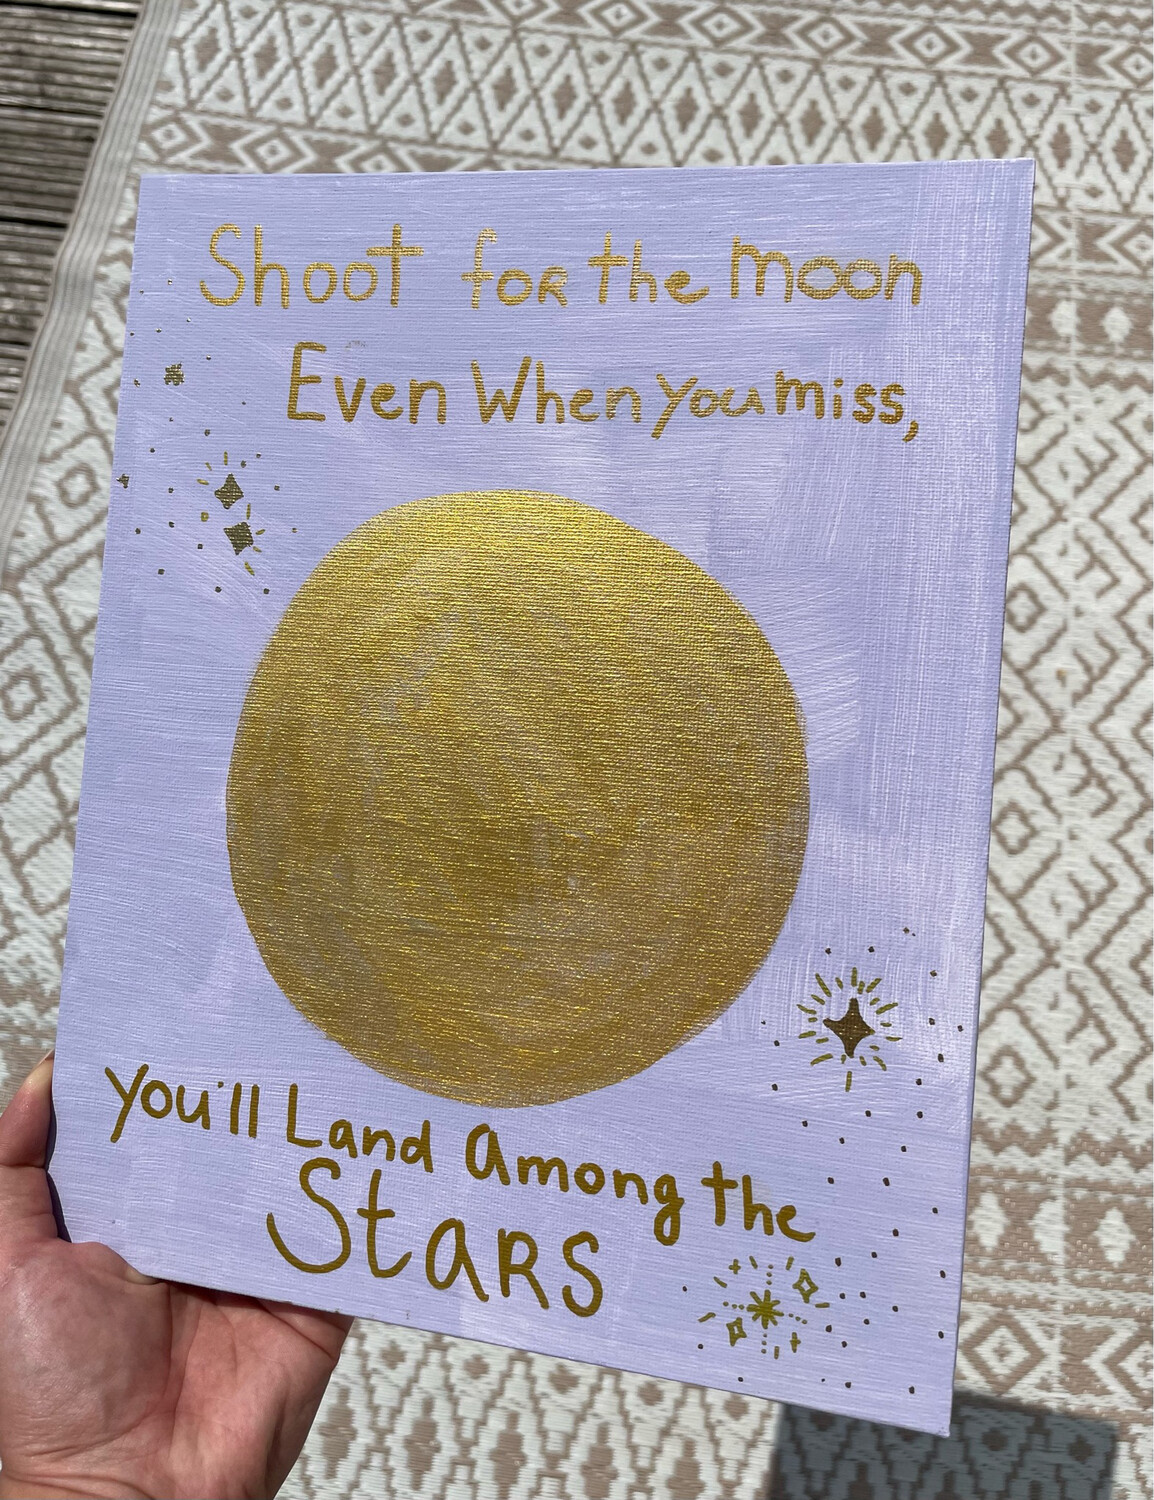 Shoot for the moon
Even When you miss,
you'll Land Among the
Stars